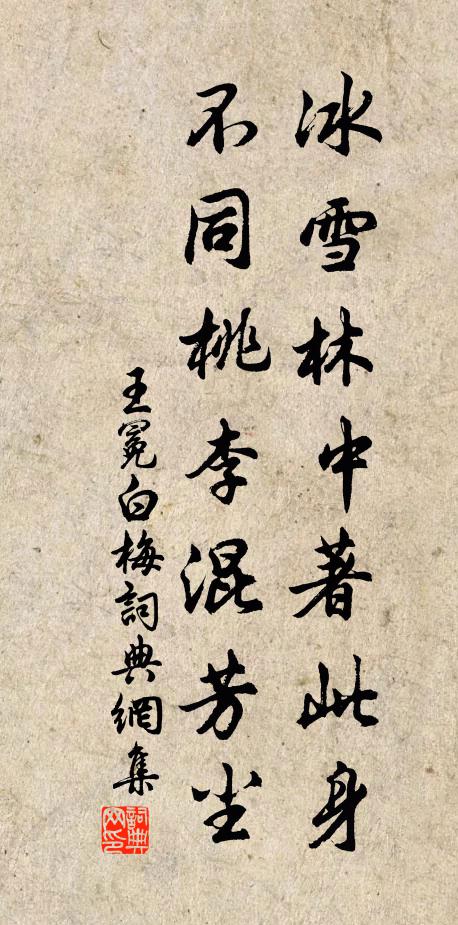 冰雪林中著此身
不同桃李混芳尘
王冕白梅詞典網集
詞典网印